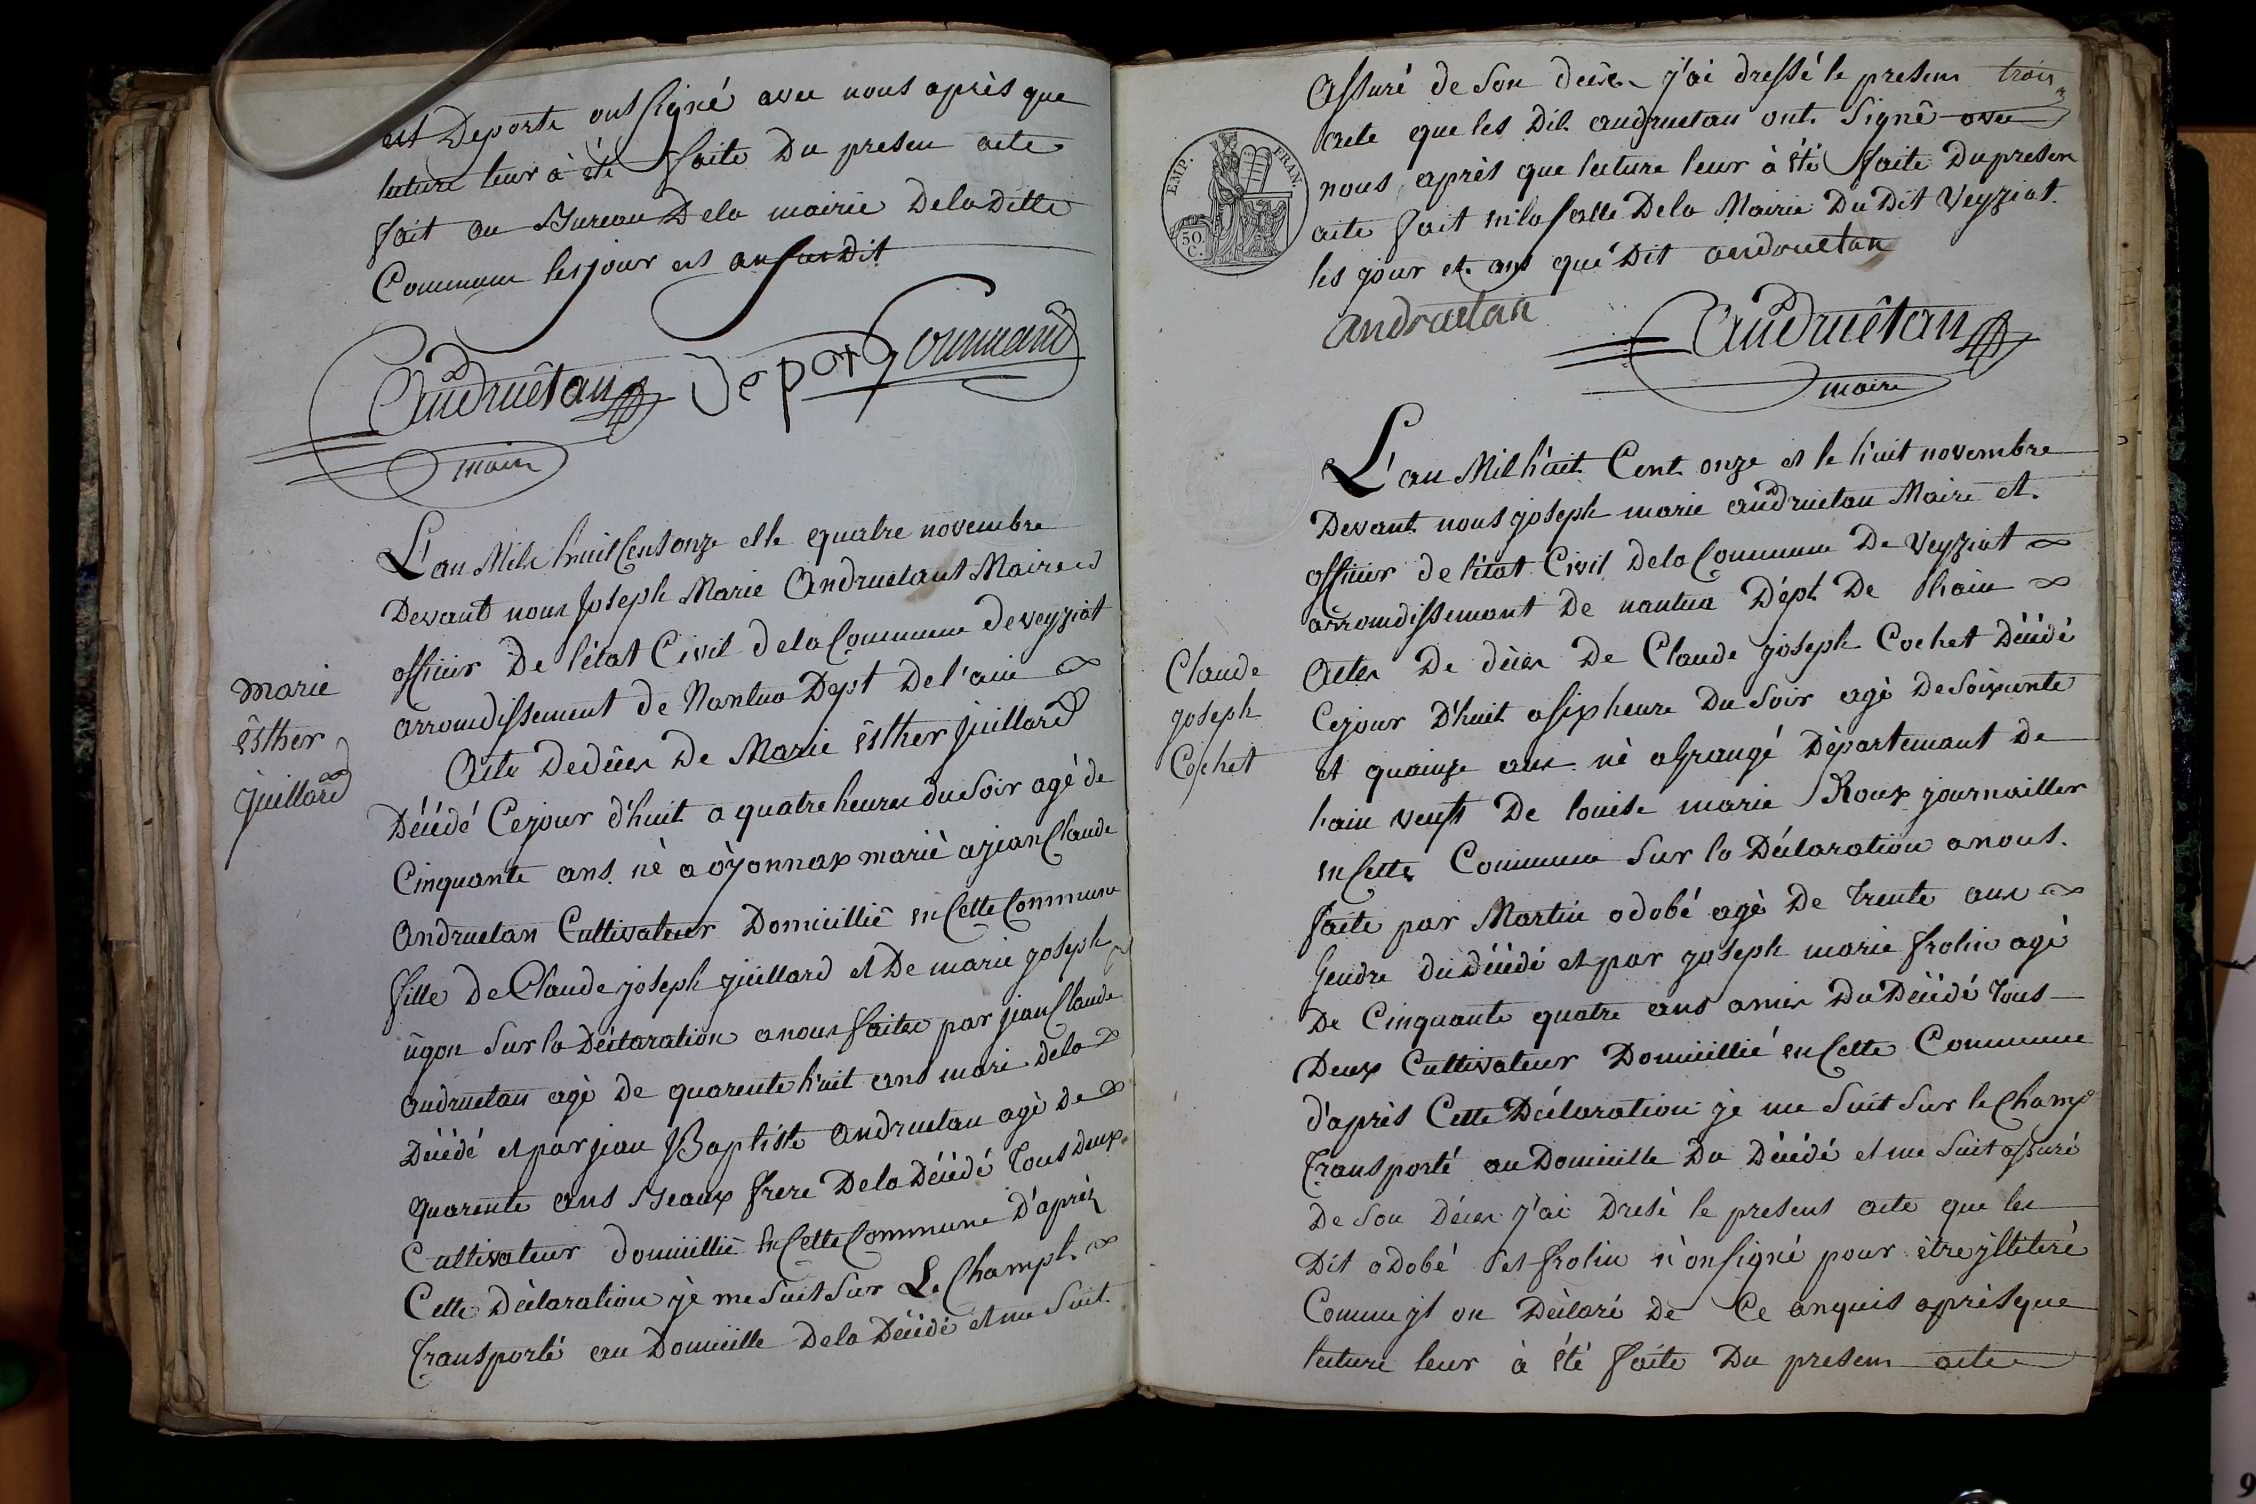 est Deporte ont signé avec nous après que
lecture leur à été faite Du presen acte
fait au Bureau Dela mairie Deladitte
Commune les jour est an susdit
Andruétan Deporte Gourmand
maire
L'an Mile huit Cent onze et le quatre novembre
Devant nous Joseph Marie Andruetant Maire et
officier De l'état Civil dela Commune de veyziat
arromdissement de Nantua Dept De l'ain
Marie
Esther
juillard
Acte Dedéces De Marie esther juillard
Décédé Cejour d'huit a quatre heures du Soir agé de
Cinquante ans né a oyonnax marié a jian Claude
Andruetan Cultivateur Domicillié en Cette Commune
fille De Claude joseph juillard et De marie joseph
ugon Sur la Déclaration a nous faites par jian Claude
andruetan agé de quarente huit ans mari dela
Décédé et par jian Baptiste andruetan agé De
quarente ans Beaux frere Dela Décédé tous deux
Cultivateur domicillié en Cette Commune D'après
Cette Déclaration je me Suit Sur Le Champt
Transporté au Domicille Dela Décédé et me Suit
Assuré de Son décès j'ai dressé le presens trois
acte que les Dit andruetan ont Signé avec
nous après que lecture leur à été faite Du presen
acte fait en la Salle Dela Mairie Du Dit Veyziat
les jour et ans que Dit andruetan
EMP. FRAN.
50 C.
andruetan
Andruétan
maire
L'an Mil huit Cent onze et le huit novembre
Devant nous joseph marie andruetan Maire et
officier de l'état Civil dela Commune De Veyziat
arromdissement De nantua Dépt De lhain
Claude
joseph
Cochet
Actes De déces De Claude joseph Cochet Décédé
Cejour D'huit a six heure Du Soir agé De Soixente
et quainze ans né a Grangé Département De
lain veuft De louise marie Roux journailler
en Cette Commune Sur la Déclaration a nous
faite par Martin odobé agé De trente ans
Gendre du décédé et par joseph marie frolin agé
De Cinquante quatre ans amis Du Décédé tous
Deux Cultivateur Domicillié en Cette Commune
d'après Cette Déclaration je me Suit Sur le Champ
Transporté au Domicille Du Décédé et me Suit assuré
De Son Déces j'ai Dresé le presens acte que les
Dit odobé et frolin n'on signé pour être yllitéré
Comme yl on Déclaré De Ce anquis après que
lecture leur à été faite Du presem acte
9